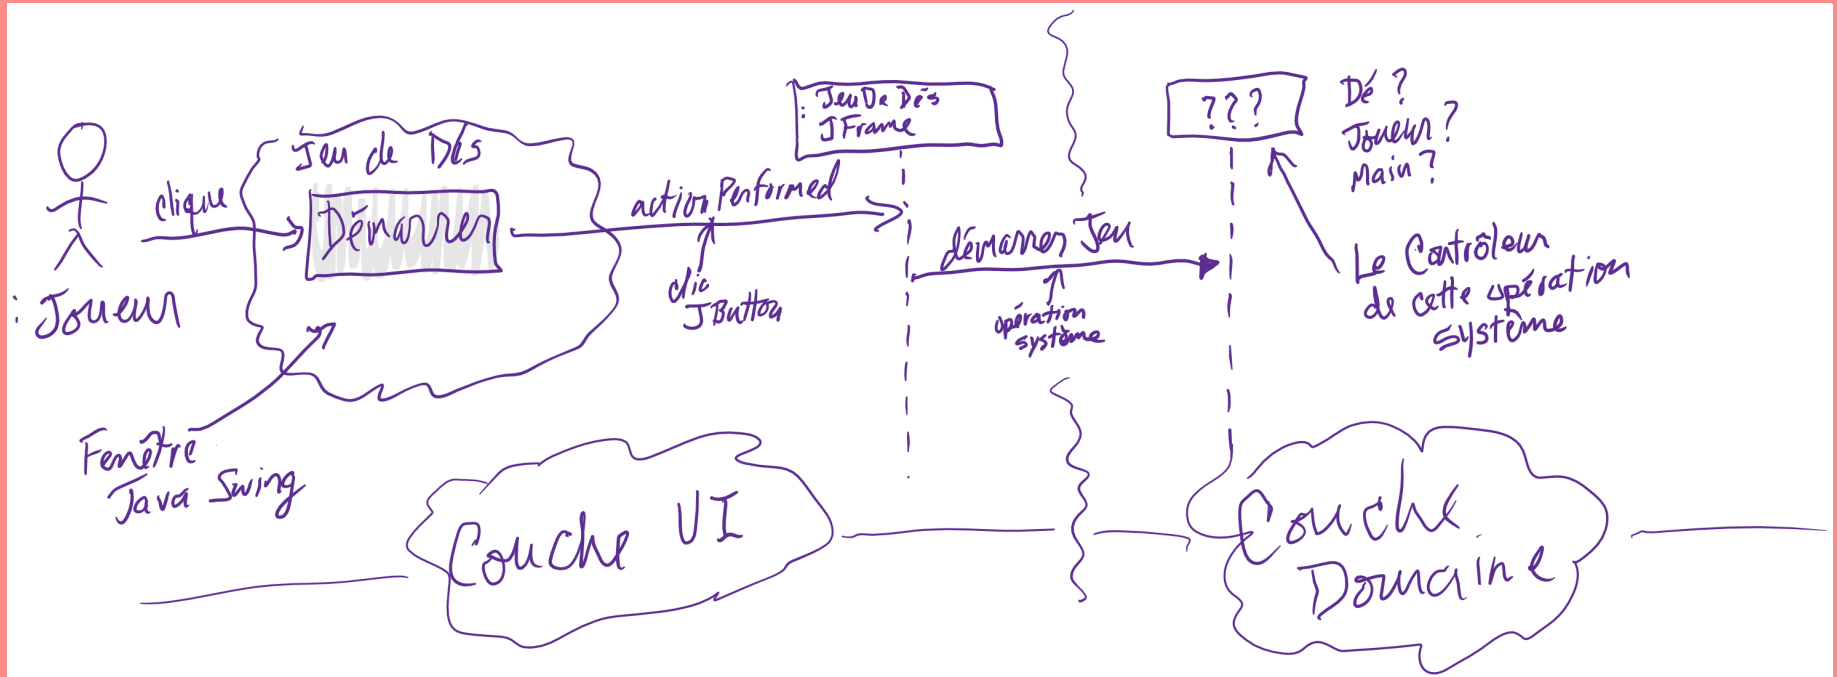 : Joueur
clique
Jeu de Dés
Démarrer
Fenêtre
Java Swing
actionPerformed
clic
JButton
: JeuDe Dés
JFrame
démarrer Jeu
opération
système
???
Dé ?
Joueur ?
Main ?
Le Contrôleur
de cette opération
système
Couche UI
Couche
Domaine